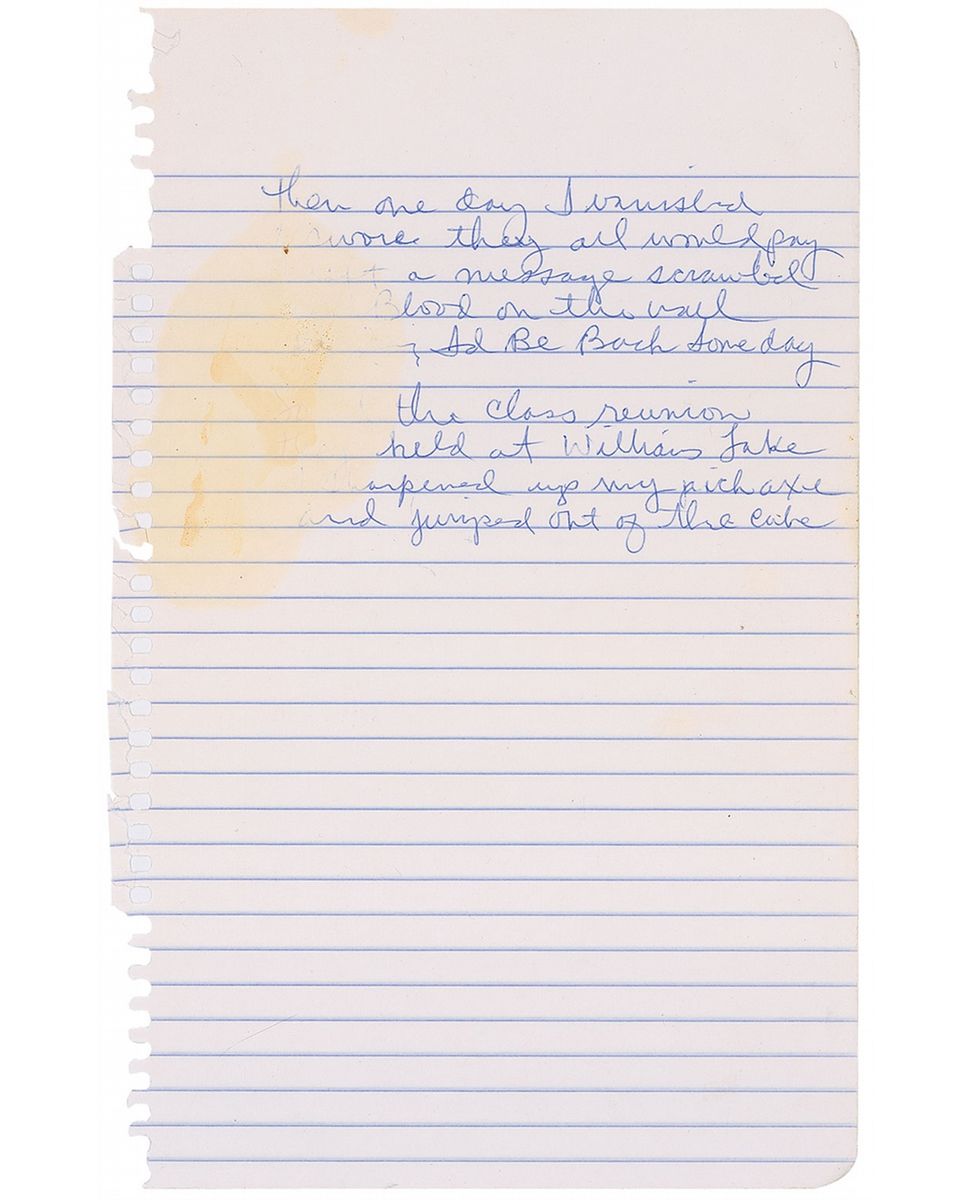 then one day I vanished
swore they all would pay
a message scrawled
Blood on the wall
I'd Be Back Someday
the class reunion
held at Williams Lake
up my pickaxe
and jumped out of the cake